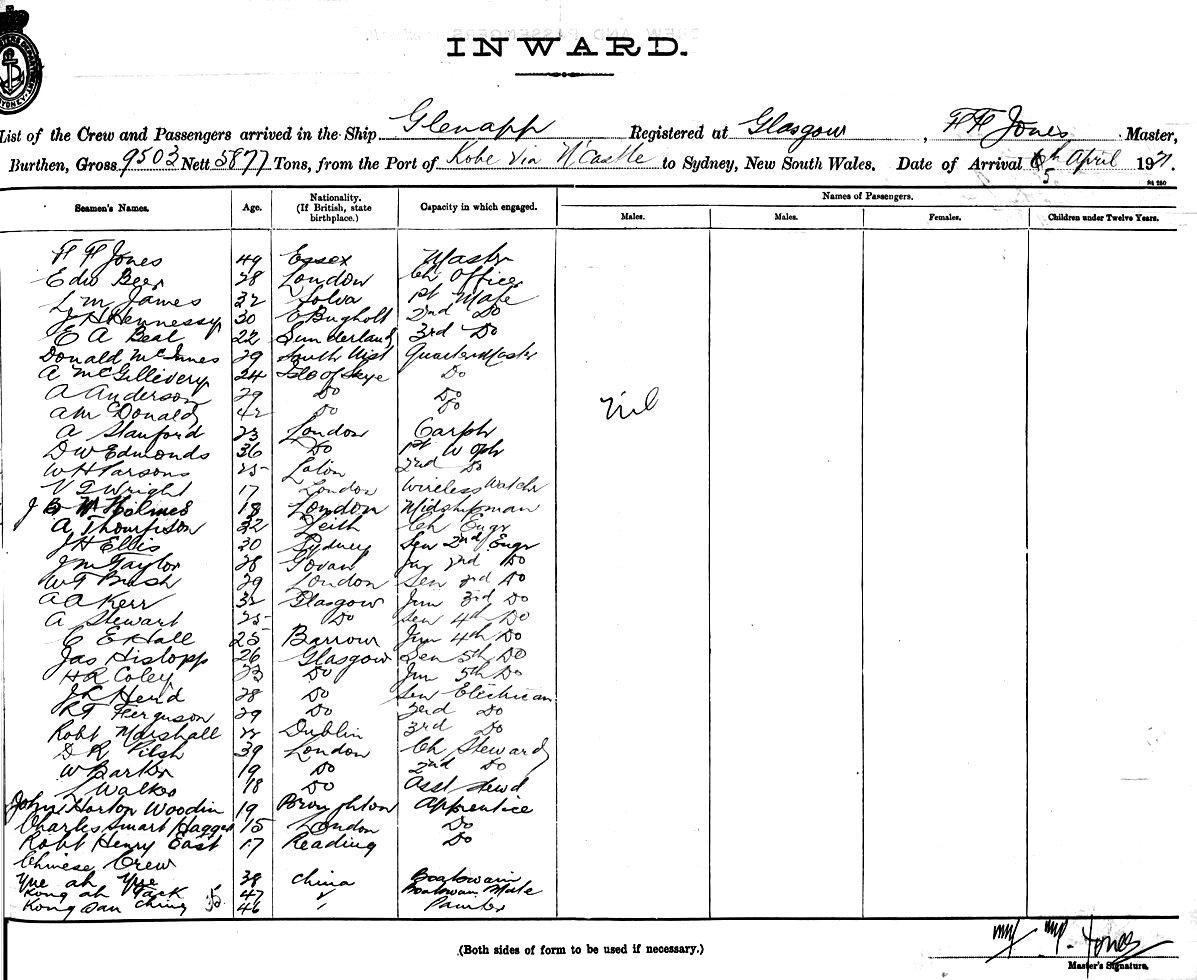 INWARD.
List of the Crew and Passengers arrived in the Ship Glenapp Registered at Glasgow, F F Jones Master,
Burthen, Gross 9503 Nett 5877 Tons, from the Port of Kobe via N'Castle to Sydney, New South Wales. Date of Arrival 5 April 19
Seamen's Names. Age. Nationality. (If British, state birthplace.) Capacity in which engaged. Names of Passengers.
Males. Males. Females. Children under Twelve Years.
F F Jones 49 Essex Master
Edw Beer 28 London Ch Officer
L M James 32 Solva 1st Mate
J H Hennessy 30 E Bugholt 2nd Do
E A Beal 22 Sunderland 3rd Do
Donald McInnes 29 South Uist QuarterMaster
A McGillivery 24 Isle of Skye Do
A Anderson 29 Do Do
A McDonald 42 Do Do
Nil
A Stanford 23 London Carptr
D W Edmonds 36 Do 1st W Opr
W H Parsons 25 2nd Do
Wright 17 London Wireless Watchr
Holmes 18 London Midshipman
A Thompson 32 Leith Ch Engr
J H Ellis 30 Sydney Sen 2nd Engr
J M Taylor 28 Govan Jun 2nd Do
W T Bush 29 London Sen 3rd Do
A A Kerr 32 Glasgow Jun 3rd Do
A Stewart 25 Do Sen 4th Do
C E Hall 25 Barrow Jun 4th Do
Jas Hislopp 26 Glasgow Sen 5th Do
H R Coley 23 Do Jun 5th Do
28 Do Sen Electrician
R T Ferguson 29 Do 2nd Do
Robt Marshall 22 Dublin 3rd Do
D R 39 London Ch Steward
W Barker 19 Do 2nd Do
Walker 18 Do Asst Stewd
John Horton Woodin 19 Broughton Apprentice
Charles Smart Hagger 15 London Do
Robt Henry East 17 Reading Do
Chinese Crew
Yue ah Yue 38 China Boatswain
Kong ah Tack 47 " Boatswain Mate
Kong San Ching 46 " Painter
(Both sides of form to be used if necessary.)
Jones
Master's Signature.